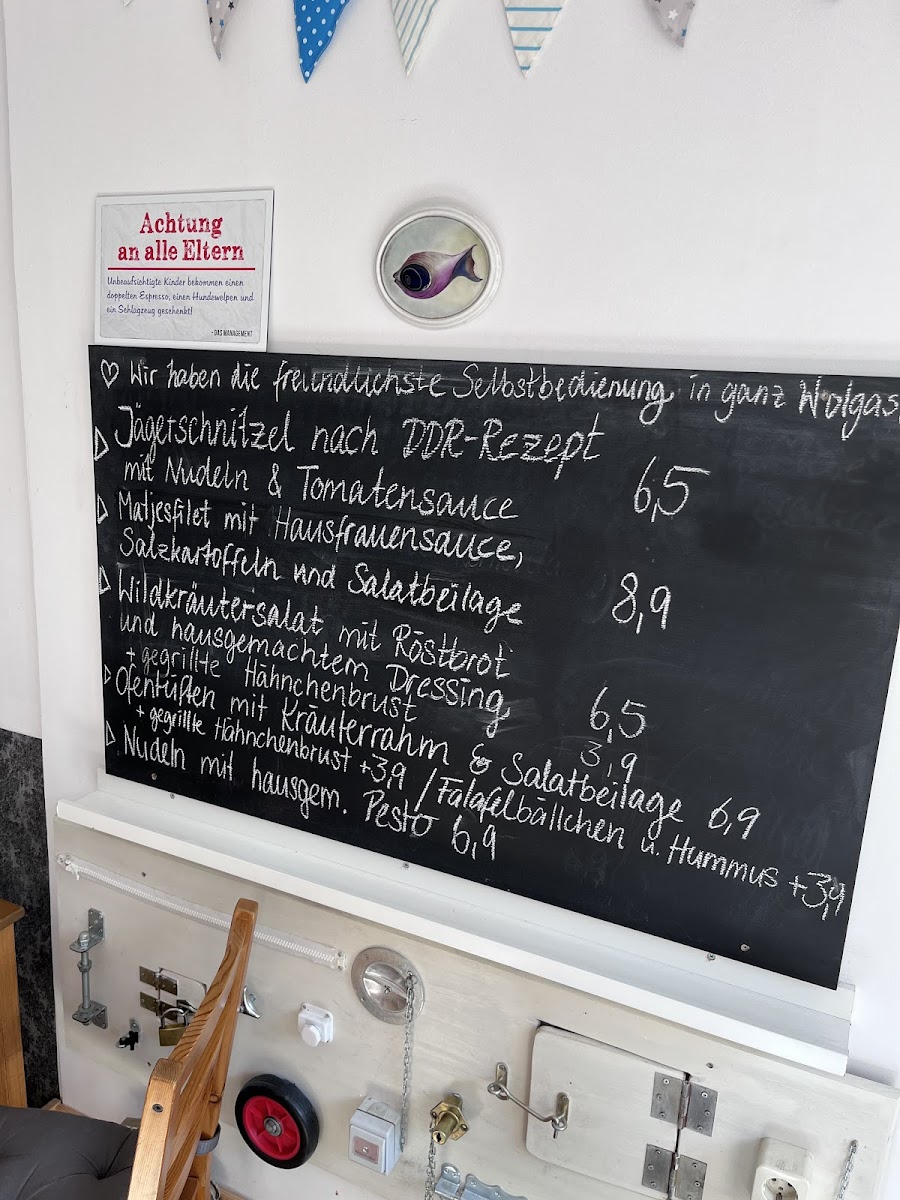 Achtung
an alle Eltern
Unbeaufsichtigte Kinder bekommen einen
doppelten Espresso, einen Hundewelpen und
ein Schlagzeug geschenkt!
- DAS MANAGEMENT
♡ Wir haben die freundlichste Selbstbedienung in ganz Wolgas
Jägerschnitzel nach DDR-Rezept
mit Nudeln & Tomatensauce 6,5
Matjesfilet mit Hausfrauensauce,
Salzkartoffeln und Salatbeilage 8,9
Wildkräutersalat mit Röstbrot
und hausgemachtem Dressing, 6,5
+ gegrillte Hähnchenbrust 3,9
Ofentüften mit Kräuterrahm & Salatbeilage 6,9
+ gegrillte Hähnchenbrust +3,9 / Falafelbällchen u. Hummus +3,9
Nudeln mit hausgem. Pesto 6,9